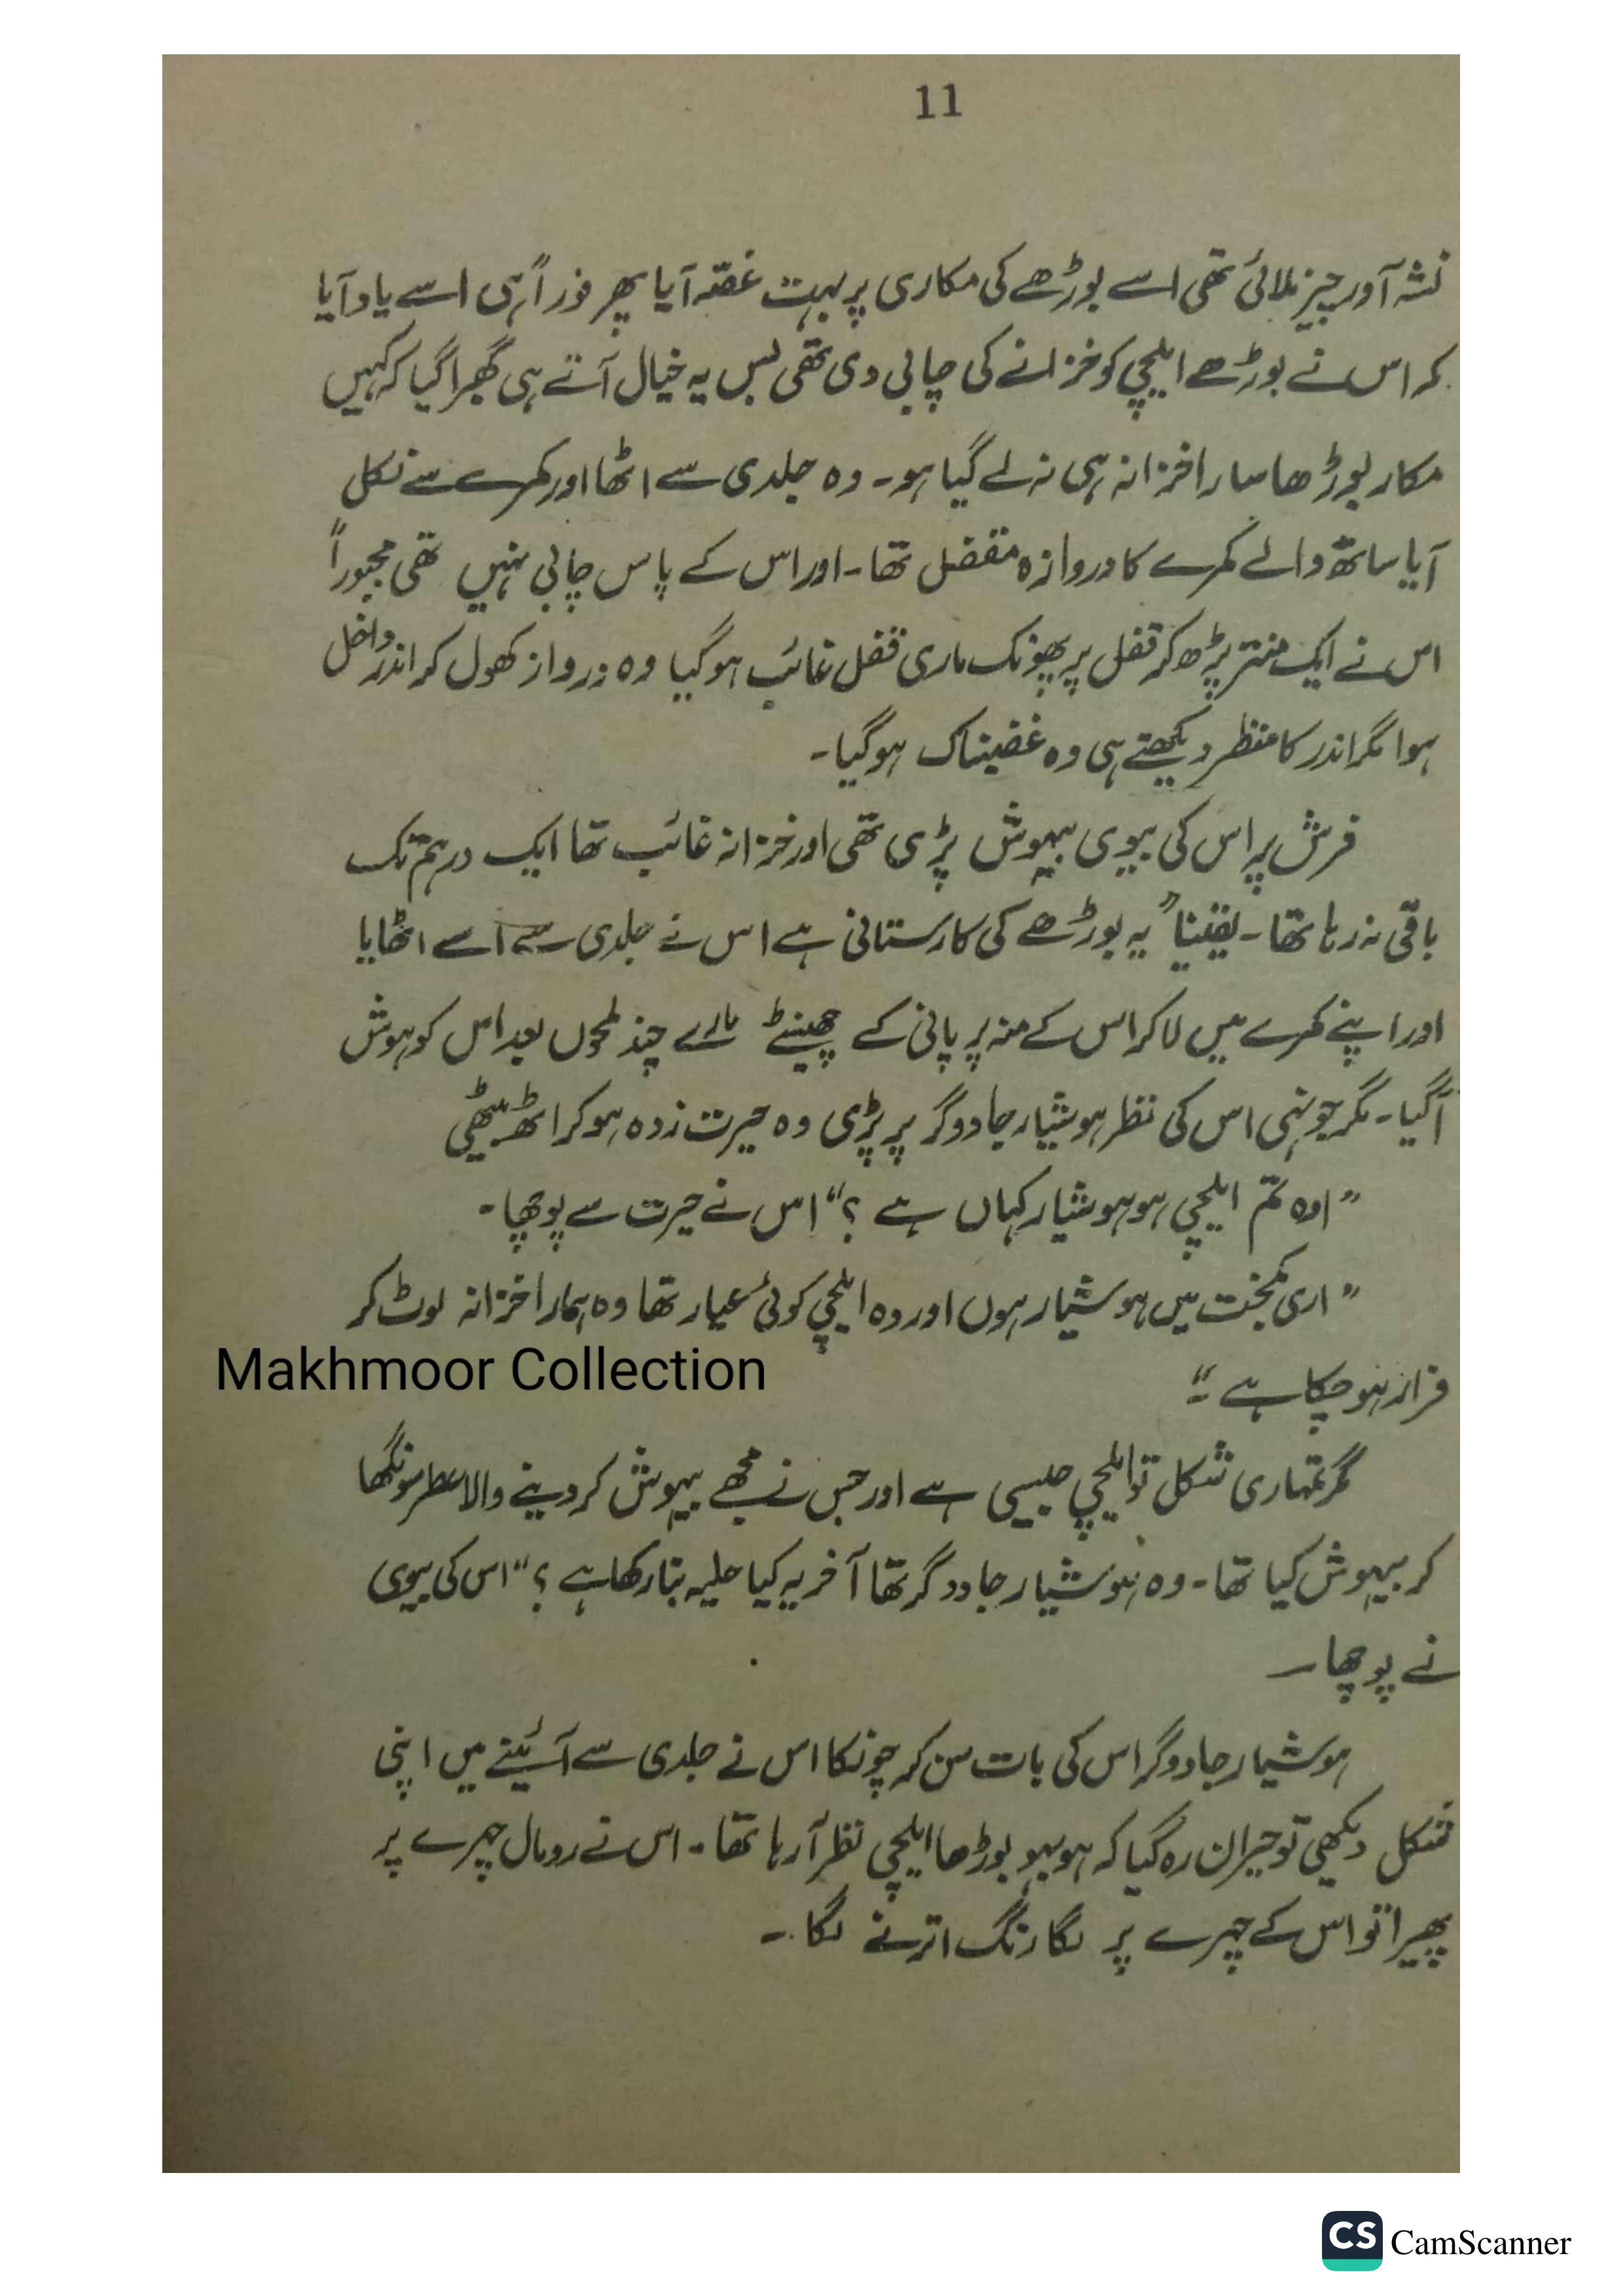 11
نشہ آور چیز ملائی تھی اسے بوڑھے کی مکاری پر بہت غصّہ آیا پھر فوراً ہی اسے یاد آیا
کہ اس نے بوڑھے ایلچی کو خزانے کی چابی دی تھی بس یہ خیال آتے ہی گھبرا گیا کہ کہیں
مکار بوڑھا سارا خزانہ ہی نہ لے گیا ہو۔ وہ جلدی سے اٹھا اور کمرے سے نکل
آیا ساتھ والے کمرے کا دروازہ مقفل تھا۔ اور اس کے پاس چابی نہیں تھی مجبوراً
اس نے ایک منتر پڑھ کر قفل پر پھونک ماری قفل غائب ہو گیا وہ درواز کھول کر اندر داخل
ہوا مگر اندر کا منظر دیکھتے ہی وہ غضبناک ہو گیا۔
فرش پر اس کی بیوی بیہوش پڑی تھی اور خزانہ غائب تھا ایک درہم تک
باقی نہ رہا تھا۔ یقیناً یہ بوڑھے کی کارستانی ہے اس نے جلدی سے اسے اٹھایا
اور اپنے کمرے میں لا کر اس کے منہ پر پانی کے چھینٹے مارے چند لمحوں بعد اس کو ہوش
آگیا۔ مگر جونہی اس کی نظر ہوشیار جادوگر پر پڑی وہ حیرت زدہ ہو کر اٹھ بیٹھی
”اوہ تم ایلچی ہو ہوشیار کہاں ہے ؟“ اس نے حیرت سے پوچھا۔
”اری کمبخت میں ہوشیار ہوں اور وہ ایلچی کوئی عیار تھا وہ ہمارا خزانہ لوٹ کر
فرار ہو چکا ہے۔“
Makhmoor Collection
مگر تمہاری شکل تو ایلچی جیسی ہے اور جس نے مجھے بیہوش کر دینے والا عطر سونگھا
کر بیہوش کیا تھا۔ وہ ہوشیار جادوگر تھا آخر یہ کیا حلیہ بنا رکھا ہے ؟“ اس کی بیوی
نے پوچھا۔
ہوشیار جادوگر اس کی بات سن کر چونکا اس نے جلدی سے آئینے میں اپنی
شکل دیکھی تو حیران رہ گیا کہ ہو بہو بوڑھا ایلچی نظر آ رہا تھا۔ اس نے رومال چہرے پر
پھیرا تو اس کے چہرے پر لگا رنگ اترنے لگا۔
CS CamScanner